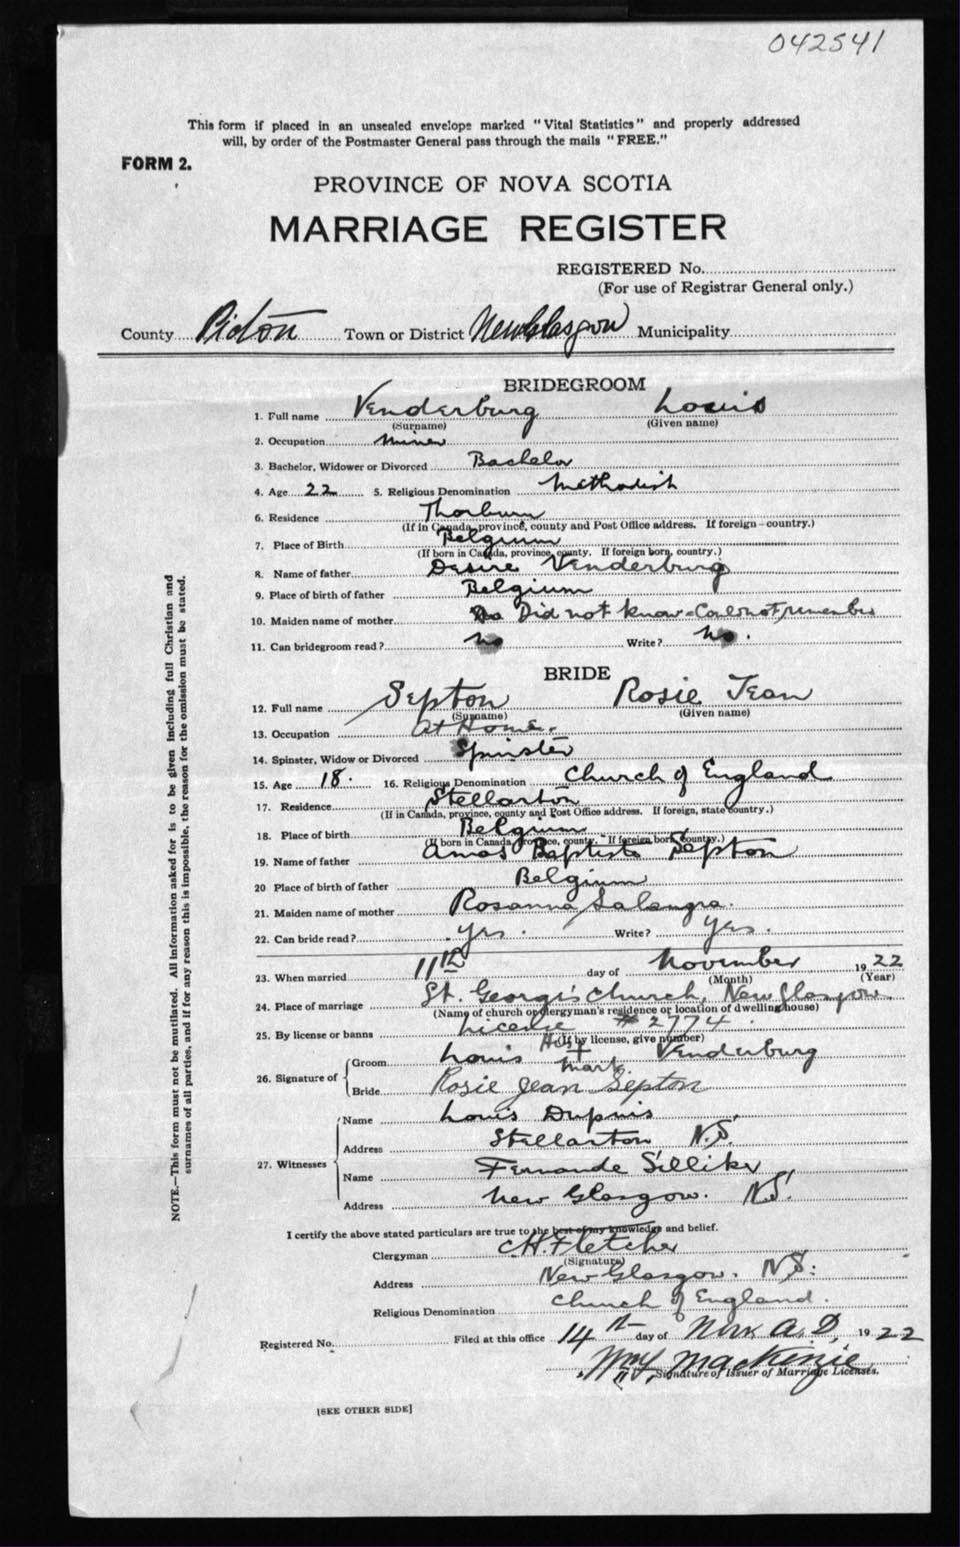 042541
This form if placed in an unsealed envelope marked "Vital Statistics" and properly addressed
will, by order of the Postmaster General pass through the mails "FREE."
FORM 2.
PROVINCE OF NOVA SCOTIA
MARRIAGE REGISTER
REGISTERED No.
(For use of Registrar General only.)
County Pictou Town or District New Glasgow Municipality
BRIDEGROOM
1. Full name Venderburg Louis
(Surname) (Given name)
2. Occupation Miner
3. Bachelor, Widower or Divorced Bachelor
4. Age 22 5. Religious Denomination Methodist
6. Residence Thorburn
(If in Canada, province, county and Post Office address. If foreign - country.)
7. Place of Birth Belgium
(If born in Canada, province, county. If foreign born, country.)
8. Name of father Desire Venderburg
9. Place of birth of father Belgium
10. Maiden name of mother Did not know - Could not remember
11. Can bridegroom read? No Write? No.
BRIDE
12. Full name Septon Rosie Jean
(Surname) (Given name)
13. Occupation At Home.
14. Spinster, Widow or Divorced Spinster
15. Age 18. 16. Religious Denomination Church of England
17. Residence Stellarton
(If in Canada, province, county and Post Office address. If foreign, state country.)
18. Place of birth Belgium
(If born in Canada, province, county. If foreign born, country.)
19. Name of father Amos Baptiste Septon
20 Place of birth of father Belgium
21. Maiden name of mother Rosanna
22. Can bride read? Yes. Write? Yes.
23. When married 11th day of November 1922
(Month) (Year)
24. Place of marriage St. George's Church, New Glasgow
(Name of church or clergyman's residence or location of dwelling house)
25. By license or banns License # 2774
(If by license, give number)
His
Groom Louis + Venderburg
Mark.
26. Signature of
Bride Rosie Jean Septon
Name Louis Dupuis
Address Stellarton N.S.
27. Witnesses
Name Fernande Silliker
Address New Glasgow. N.S.
I certify the above stated particulars are true to the best of my knowledge and belief.
Clergyman C.H. Fletcher
(Signature)
Address New Glasgow. N.S.
Religious Denomination Church of England.
Registered No. Filed at this office 14th day of Nov. A.D. 1922
Wm. MacKenzie
Signature of Issuer of Marriage Licenses.
[SEE OTHER SIDE]
NOTE.—This form must not be mutilated. All information asked for is to be given including full Christian and
surnames of all parties, and if for any reason this is impossible, the reason for the omission must be stated.